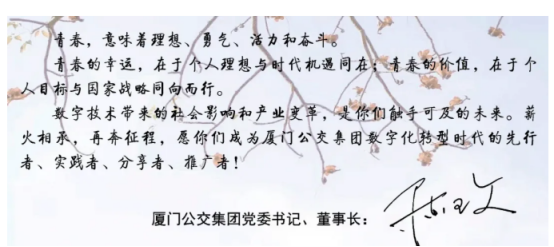 青春,意味着理想、勇气、活力和奋斗。
青春的幸运,在于个人理想与时代机遇同在;青春的价值,在于个
人目标与国家战略同向而行。
数字技术带来的社会影响和产业变革,是你们触手可及的未来。薪
火相承,再奔征程,愿你们成为厦门公交集团数字化转型时代的先行
者、实践者、分享者、推广者!
厦门公交集团党委书记、董事长: